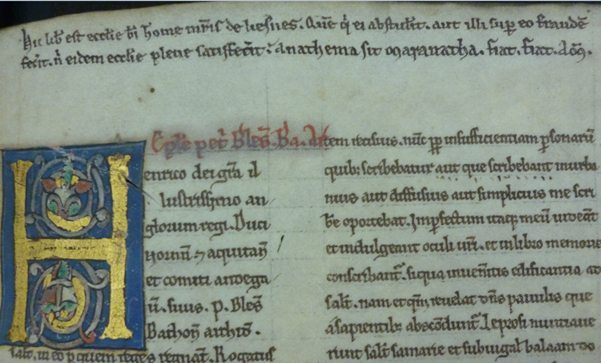 Hic lib est ecclie bi thome mris de liesnes. Que q ei abstulit. aut illi sup eo fraude
fecit. n eidem ecclie plene satisfecit. anathema sit maranatha. fiat. fiat. Am.
Eple pet Bles. Ba. A
enrico dei gra il
lustrissimo an
glorum regi. Duci
& aquitan
et comiti andega
ū. suus. p. Bles
Bathon archid.
salt. in eo p quem reges regnant. Rogatis
tem recisius. nūc pp insufficientiam psonarū
quib scribebatur aut que scribebant
nius aut diffusius aut simplicius me scri
oportebat. Imperfectum itaq meū videant
et indulgeant oculi vri. et in libro memorie
conscribant. siqua invenitis edificantia ad
salt. nam et qm revelat dns parvulis que
a sapientib abscondunt. Leprosi
runt salt samarie et subiugal balaam do